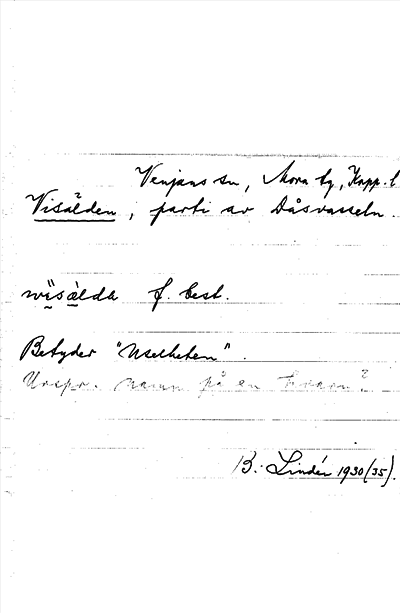 Venjans sn, Mora tg, Kopp. l
Visälden, parti av Dåsvasseln.
wisàlda f. best.
Betyder "Uselheten".
Urspr. namn på en kvarn?
B. Lindén 1930 (35).